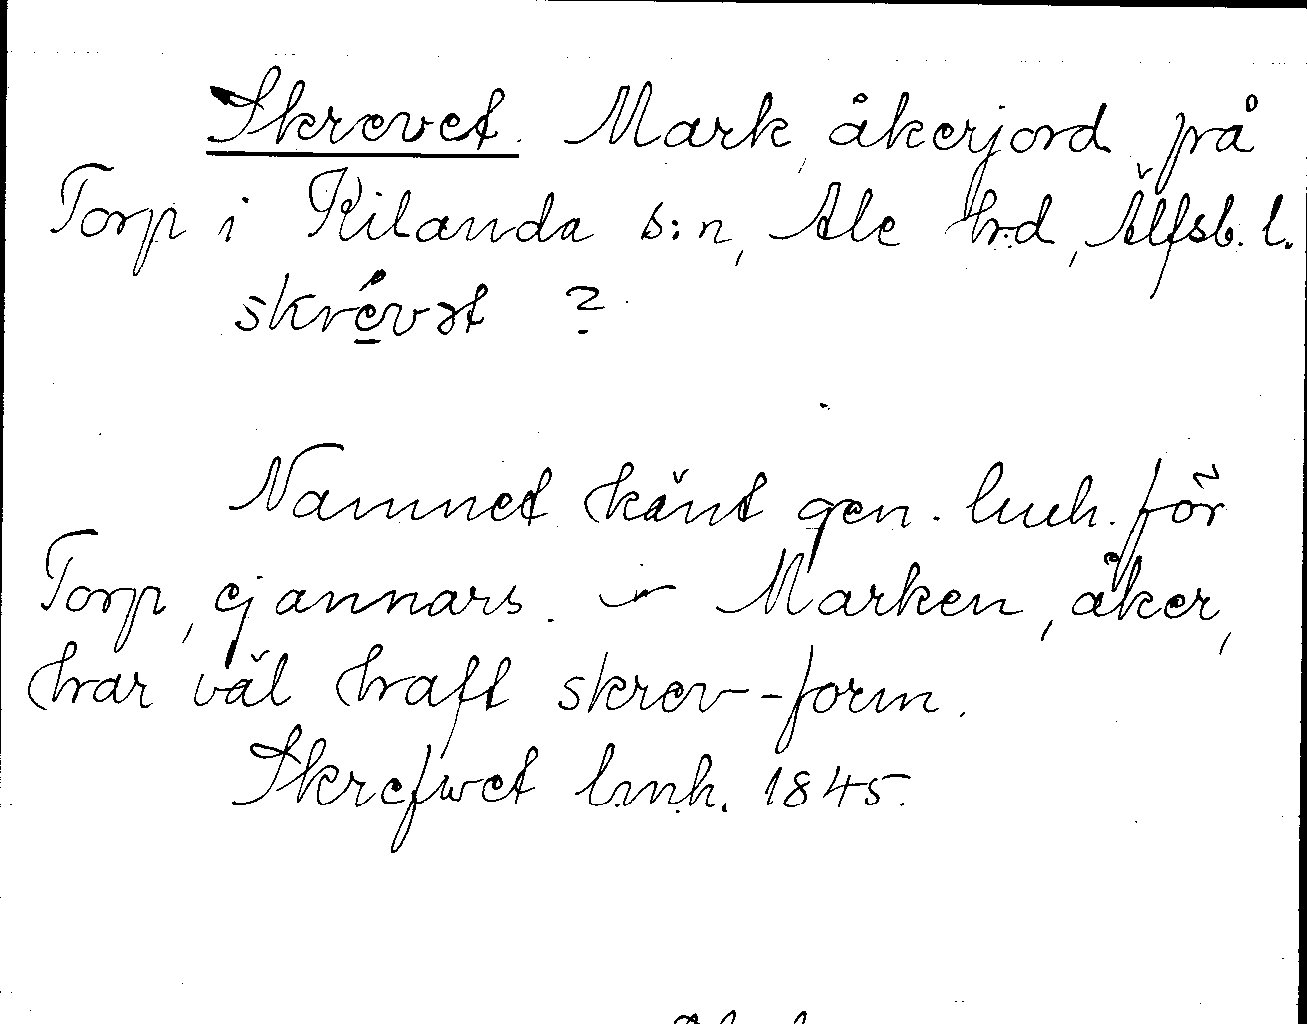 Skrevet. Mark, åkerjord på
Torp i Kilanda s:n, Ale hrd, Älfsb. l.
skrévət ?
Namnet känt gen. lmh. för
Torp, ej annars. – Marken, åker,
har väl haft skrev-form.
Skrefwet lmh. 1845.